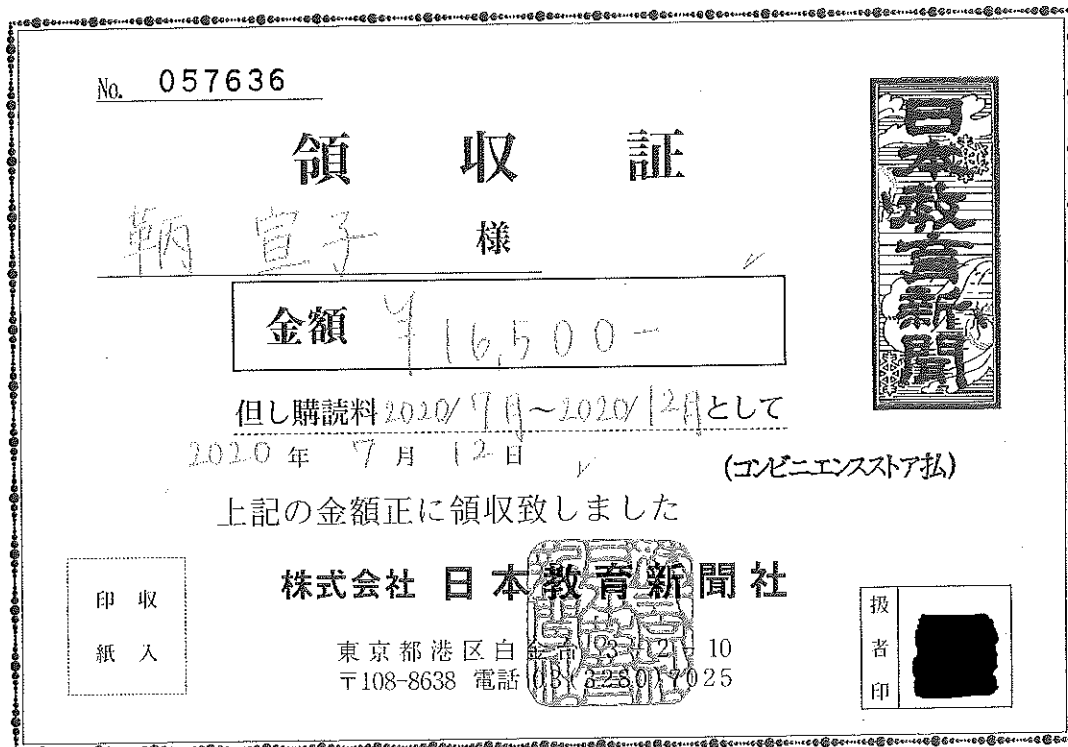 No. 057636
領収証
鞆 宣子 様
金額 ¥16,500-
但し購読料2020/7月~2020/12月として
2020年 7月 12日
(コンビニエンスストア払)
上記の金額正に領収致しました
株式会社 日本教育新聞社
東京都港区白金台3-2-10
〒108-8638 電話 03(3280)7025
日本教育新聞
収入
印紙
扱者印